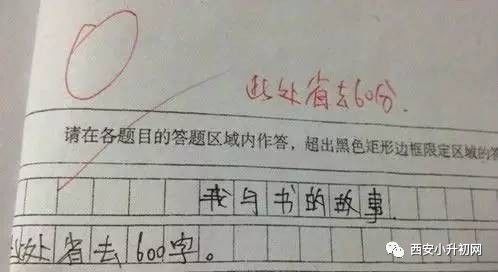 此处省去60分.
请在各题目的答题区域内作答，超出黑色矩形边框限定区域的答
我与书的故事.
此处省去600字。
西安小升初网